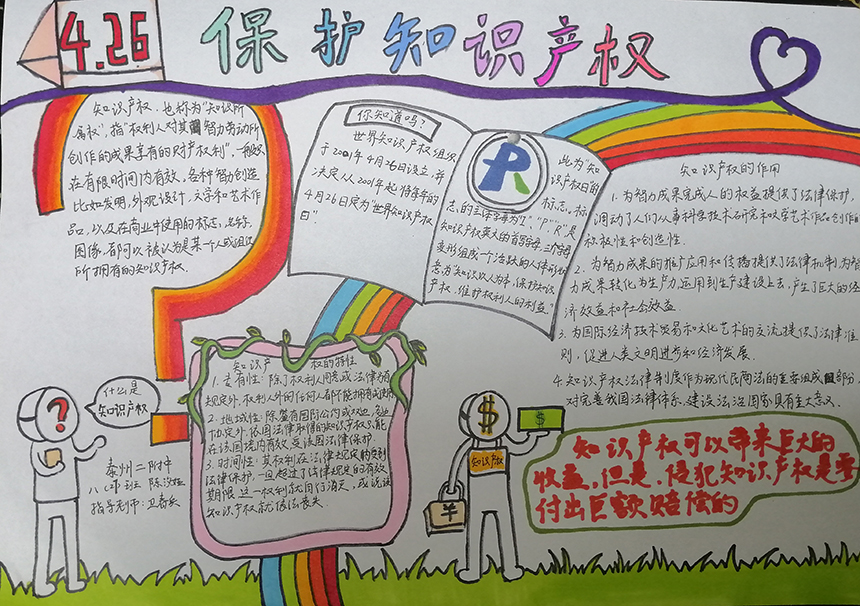 4.26
保护知识产权
知识产权，也称为"知识所
属权"，指"权利人对其智力劳动所
创作的成果享有的财产权利"，一般只
在有限时间内有效。各种智力创造
比如发明，外观设计，文学和艺术作
品，以及在商业中使用的标志、名称、
图像，都可以被认为是某一个人或组织
所拥有的知识产权。
你知道吗？
世界知识产权组织
于2001年4月26日设立，并
决定从2001年起将每年的
4月26日定为"世界知识产权
日"。
此为知
识产权日的
标志。标
志的主体字母为"I""P""R"是
知识产权英文的首字母，三个字母
变形组成一个活跃的人体形状
产权，维护权利人的利益"
知识产权的作用
1.为智力成果完成人的权益提供了法律保护，
调动了人们从事科学技术研究和文学艺术作品创作的
积极性和创造性。
2.为智力成果的推广应用和传播提供了法律机制，为智
力成果转化为生产力，运用到生产建设上去，产生了巨大的经
济效益和社会效益
3.为国际经济技术贸易和文化艺术的交流提供了法律准
则，促进人类文明进步和经济发展.
4.知识产权法律制度作为现代民商法的重要组成部分，
对完善我国法律体系，建设法治国家具有重大意义.
知识产权的特性
1.专有性：除了权利人同意或法律强
规定外，权利人外的任何人都不能拥有或使用
2.地域性：除签有国际公约或双边、多边
协定外，依国法律取得的知识产权只能
在该国境内有效，受该国法律保护
3.时间性：其权利在法律规定期内受到
法律保护，一旦超过了法律规定的有效
期限 这一权利就自行消灭，或说该
知识产权就依法丧失.
?
什么是
知识产权
泰州二附中
指导老师：卫春兵
$
$
知识产权
¥
知识产权可以带来巨大的
收益，但是，侵犯知识产权是要
付出巨额赔偿的